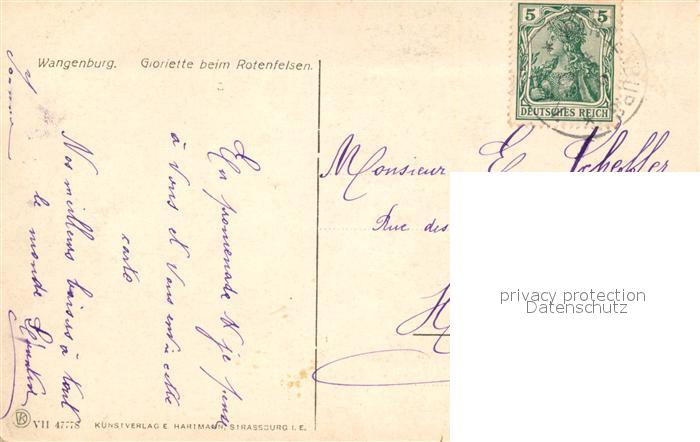 Wangenburg. Gloriette beim Rotenfelsen.
5 5
DEUTSCHES REICH
Monsieur E. Scheffer
Rue des
En promenade je pense
à vous et vous envoie cette
carte
Nos meilleurs baisers à tout
le monde
Jeanne
privacy protection
Datenschutz
VII 47778 KUNSTVERLAG E. HARTMANN, STRASSBURG I. E.